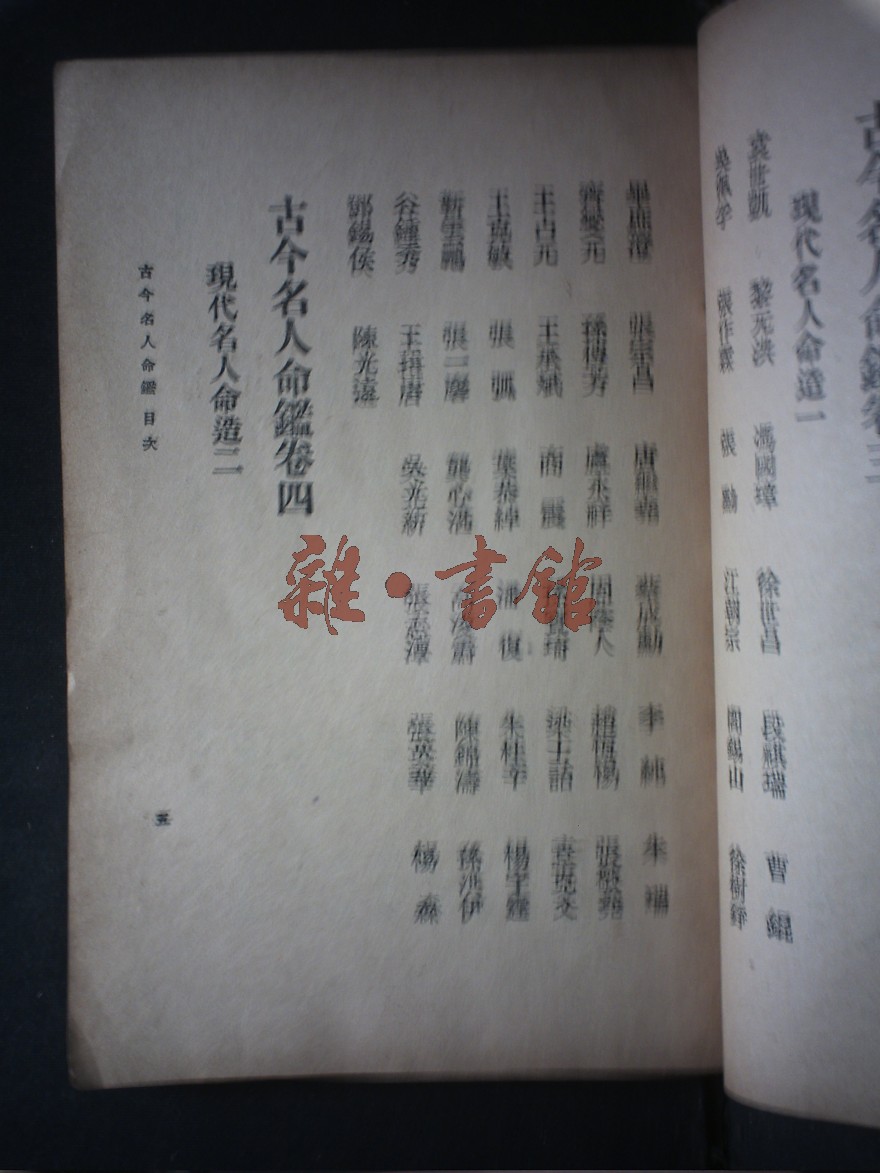 古今名人命鑑卷三
現代名人命造一
袁世凱 黎元洪 馮國璋 徐世昌 段祺瑞 曹錕
吳佩孚 張作霖 張勳 江朝宗 閻錫山 徐樹錚
張宗昌 唐繼堯 蔡成勳 李純 朱瑞
齊燮元 孫傳芳 盧永祥 周蔭人 趙恆惕 張敬堯
王占元 王承斌 商震 梁士詒 袁克文
王克敏 張弧 葉恭綽 潘復 朱桂辛 楊宇霆
靳雲鵬 張一麐 龔心湛 陳錦濤 孫洪伊
谷鍾秀 王揖唐 吳光新 張志潭 張英華 楊森
鄧錫侯 陳光遠
古今名人命鑑卷四
現代名人命造二
古今名人命鑑 目次
五
雜·書館